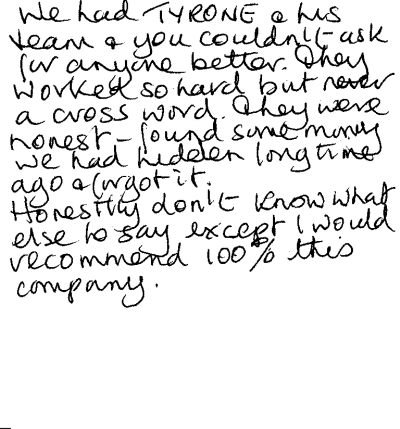 We had TYRONE & his
team & you couldn't ask
for anyone better. They
worked so hard but never
a cross word. They were
honest - found some money
we had hidden long time
ago & forgot it.
Honestly don't know what
else to say except I would
recommend 100% this
company.